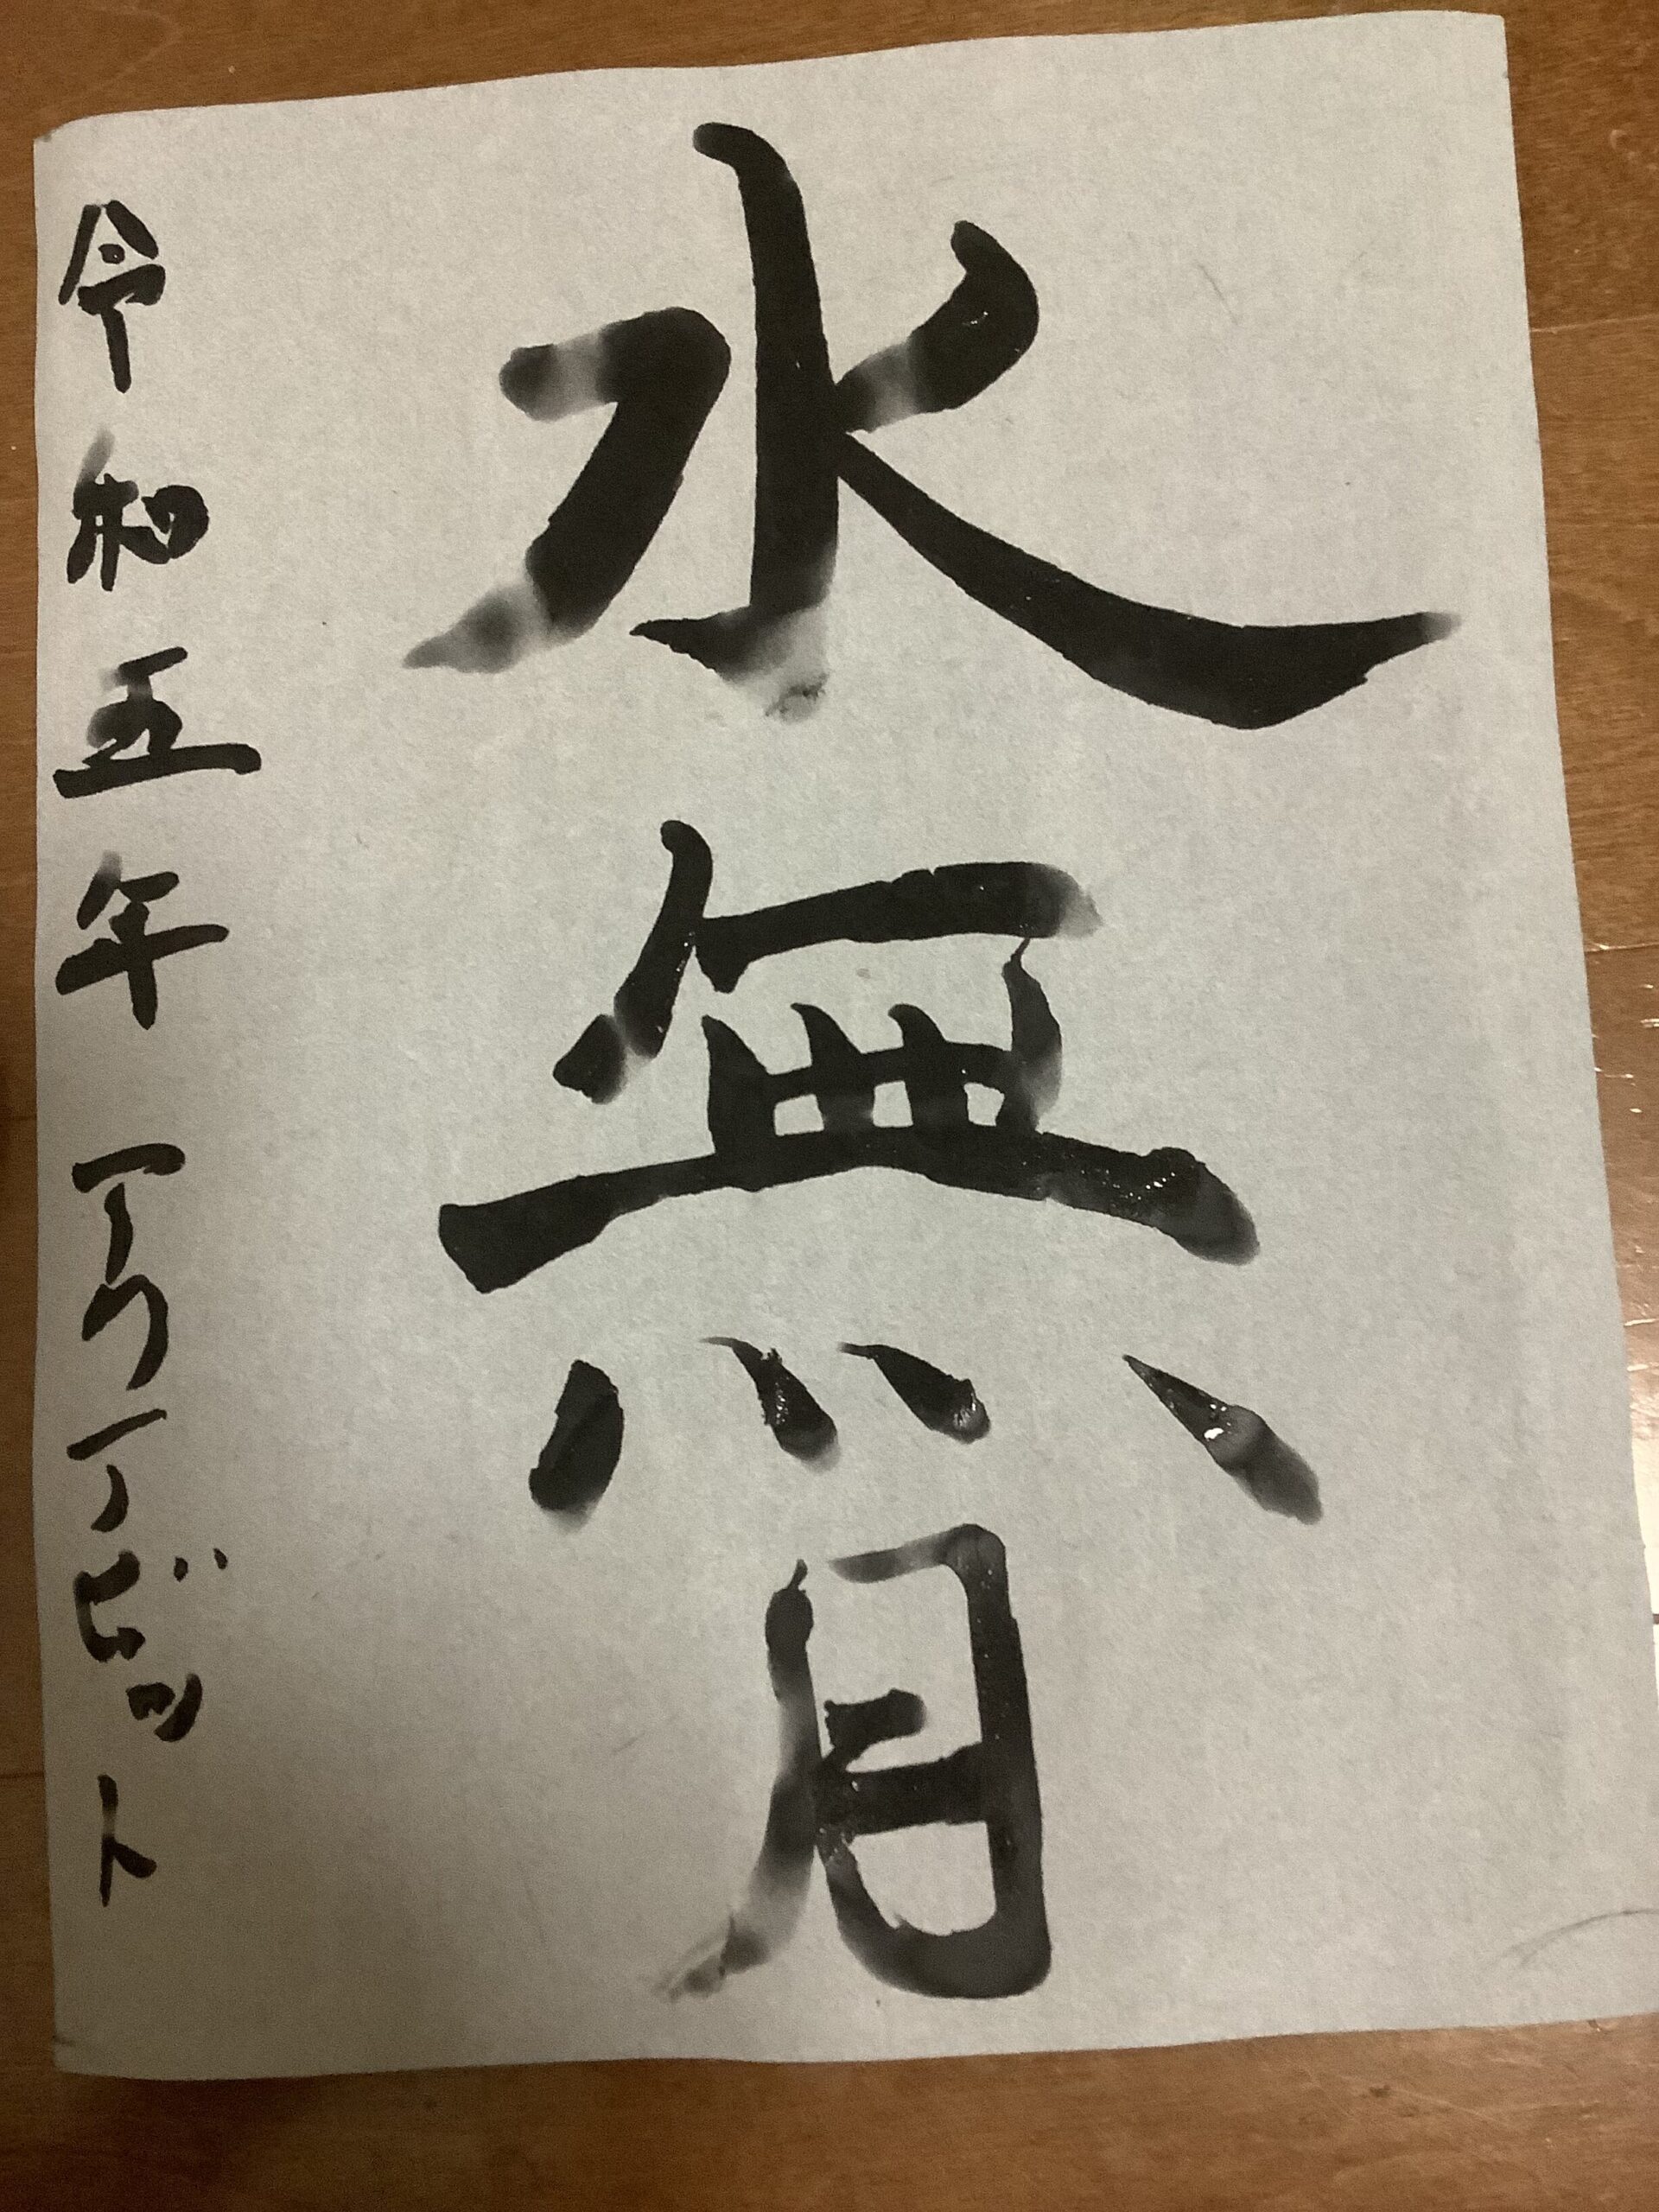 水無月
令和五年 アクアビット